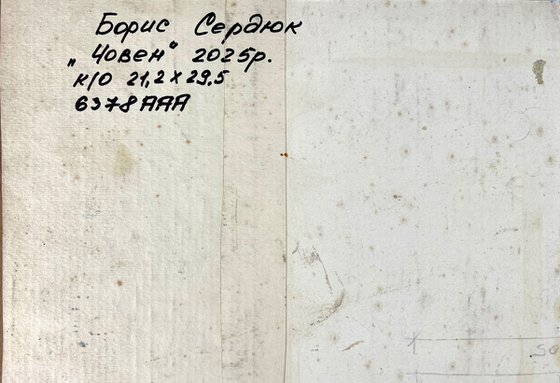 Борис Сердюк
„Човен“ 2025р.
к/о 21,2 х 29,5
6378ААА
50